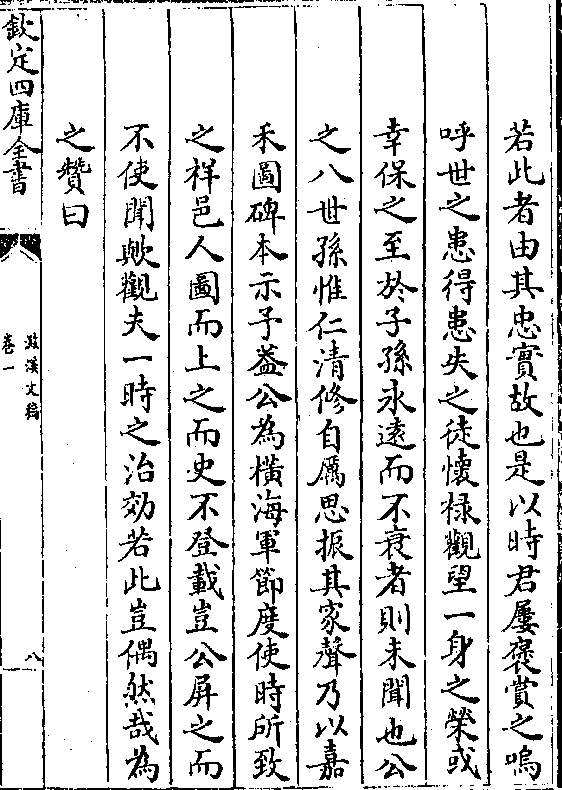 若此者由其忠實故也是以時君屢褒賞之嗚
呼世之患得患失之徒懷祿觀望一身之榮或
幸保之至於子孫永遠而不衰者則未聞也公
之八世孫惟仁清修自厲思振其家聲乃以嘉
禾圖碑本示予葢公為橫海軍節度使時所致
之祥邑人圖而上之而史不登載豈公屏之而
不使聞歟觀夫一時之治効若此豈偶然哉為
之贊曰
欽定四庫全書
卷一
文稿
八